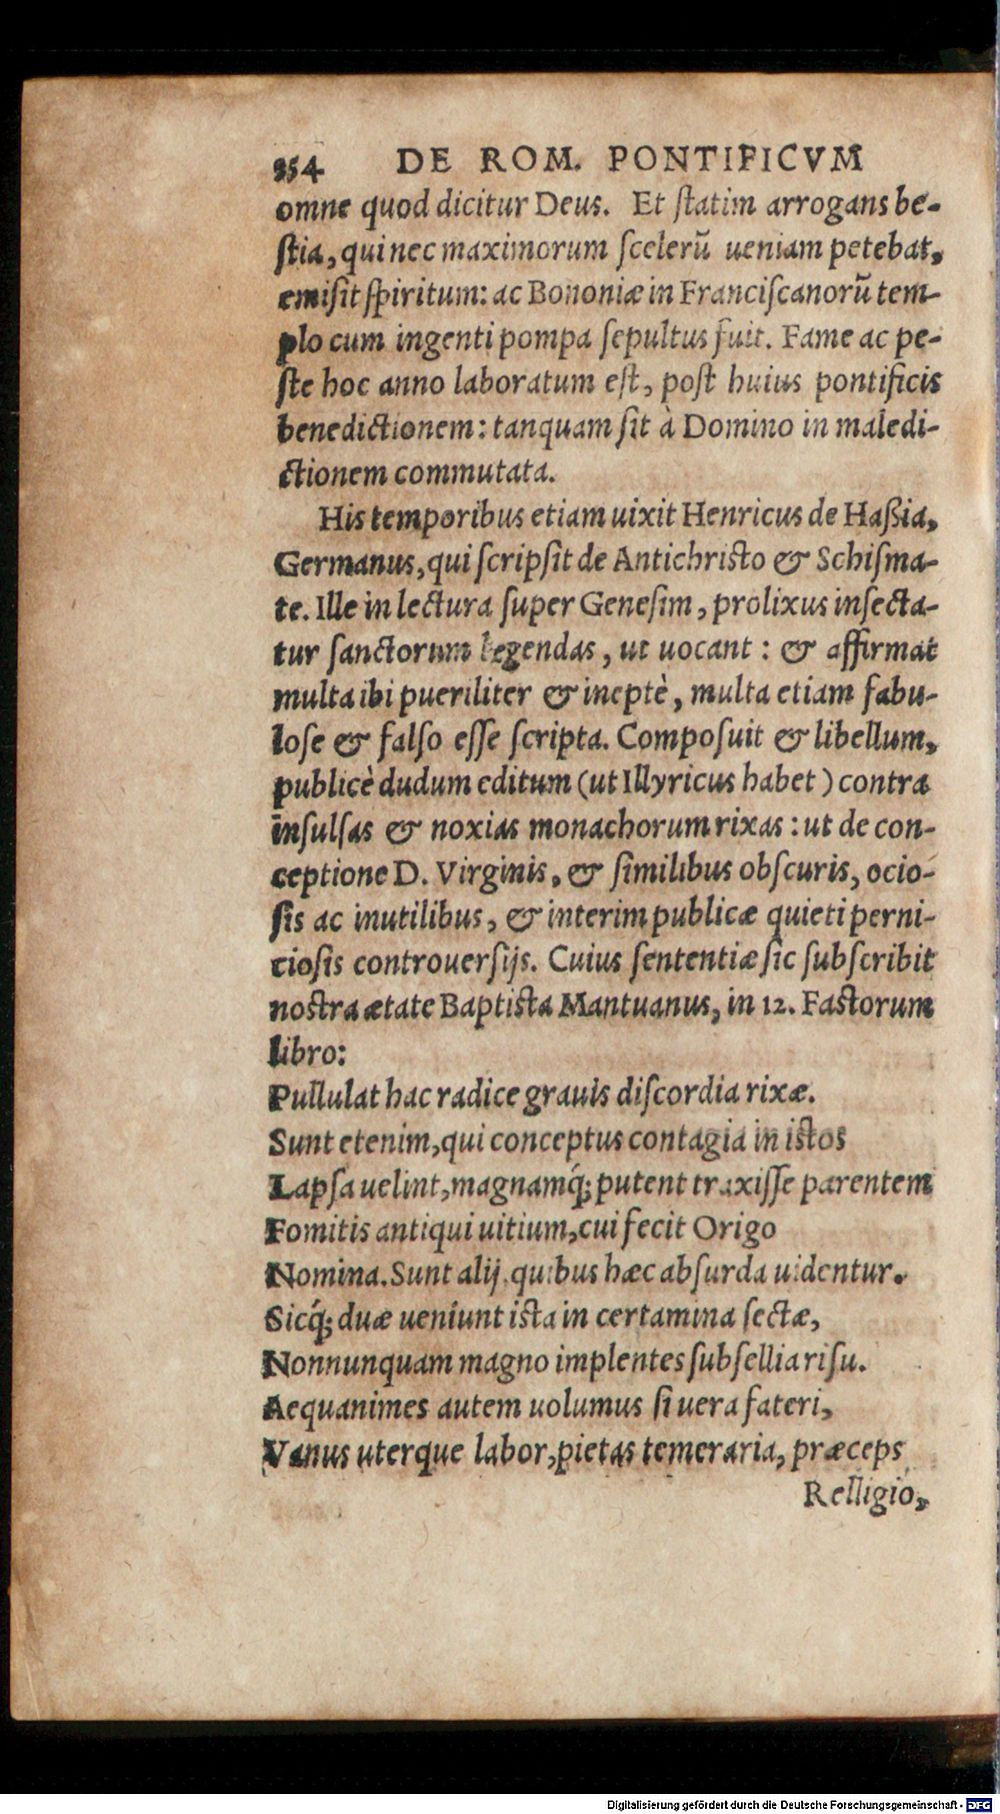 354 DE ROM. PONTIFICVM
omne quod dicitur Deus. Et ſtatim arrogans be-
ſtia, qui nec maximorum ſcelerũ ueniam petebat,
emiſit ſpiritum: ac Bononiæ in Franciſcanorũ tem-
plo cum ingenti pompa ſepultus fuit. Fame ac pe-
ſte hoc anno laboratum eſt, poſt huius pontificis
benedictionem: tanquam ſit à Domino in maledi-
ctionem commutata.
His temporibus etiam uixit Henricus de Haßia,
Germanus, qui ſcripſit de Antichriſto & Schiſma-
te. Ille in lectura ſuper Geneſim, prolixus inſecta-
tur ſanctorum legendas, ut uocant: & affirmat
multa ibi pueriliter & ineptè, multa etiam fabu-
loſe & falſo eſſe ſcripta. Compoſuit & libellum,
publicè dudum editum (ut Illyricus habet) contra
inſulſas & noxias monachorum rixas: ut de con-
ceptione D. Virginis, & ſimilibus obſcuris, ocio-
ſis ac inutilibus, & interim publicæ quieti perni-
cioſis controuerſijs. Cuius ſententiæ ſic ſubſcribit
noſtra ætate Baptiſta Mantuanus, in 12. Faſtorum
libro:
Pullulat hac radice grauis diſcordia rixæ.
Sunt etenim, qui conceptus contagia in iſtos
Lapſa uelint, magnamq́; putent traxiſſe parentem
Fomitis antiqui uitium, cui fecit Origo
Nomina. Sunt alij, quibus hæc abſurda uidentur.
Sicq́; duæ ueniunt iſta in certamina ſectæ,
Nonnunquam magno implentes ſubſellia riſu.
Aequanimes autem uolumus ſi uera fateri,
Vanus uterque labor, pietas temeraria, præceps
Relligio,
Digitalisierung gefördert durch die Deutsche Forschungsgemeinschaft - DFG